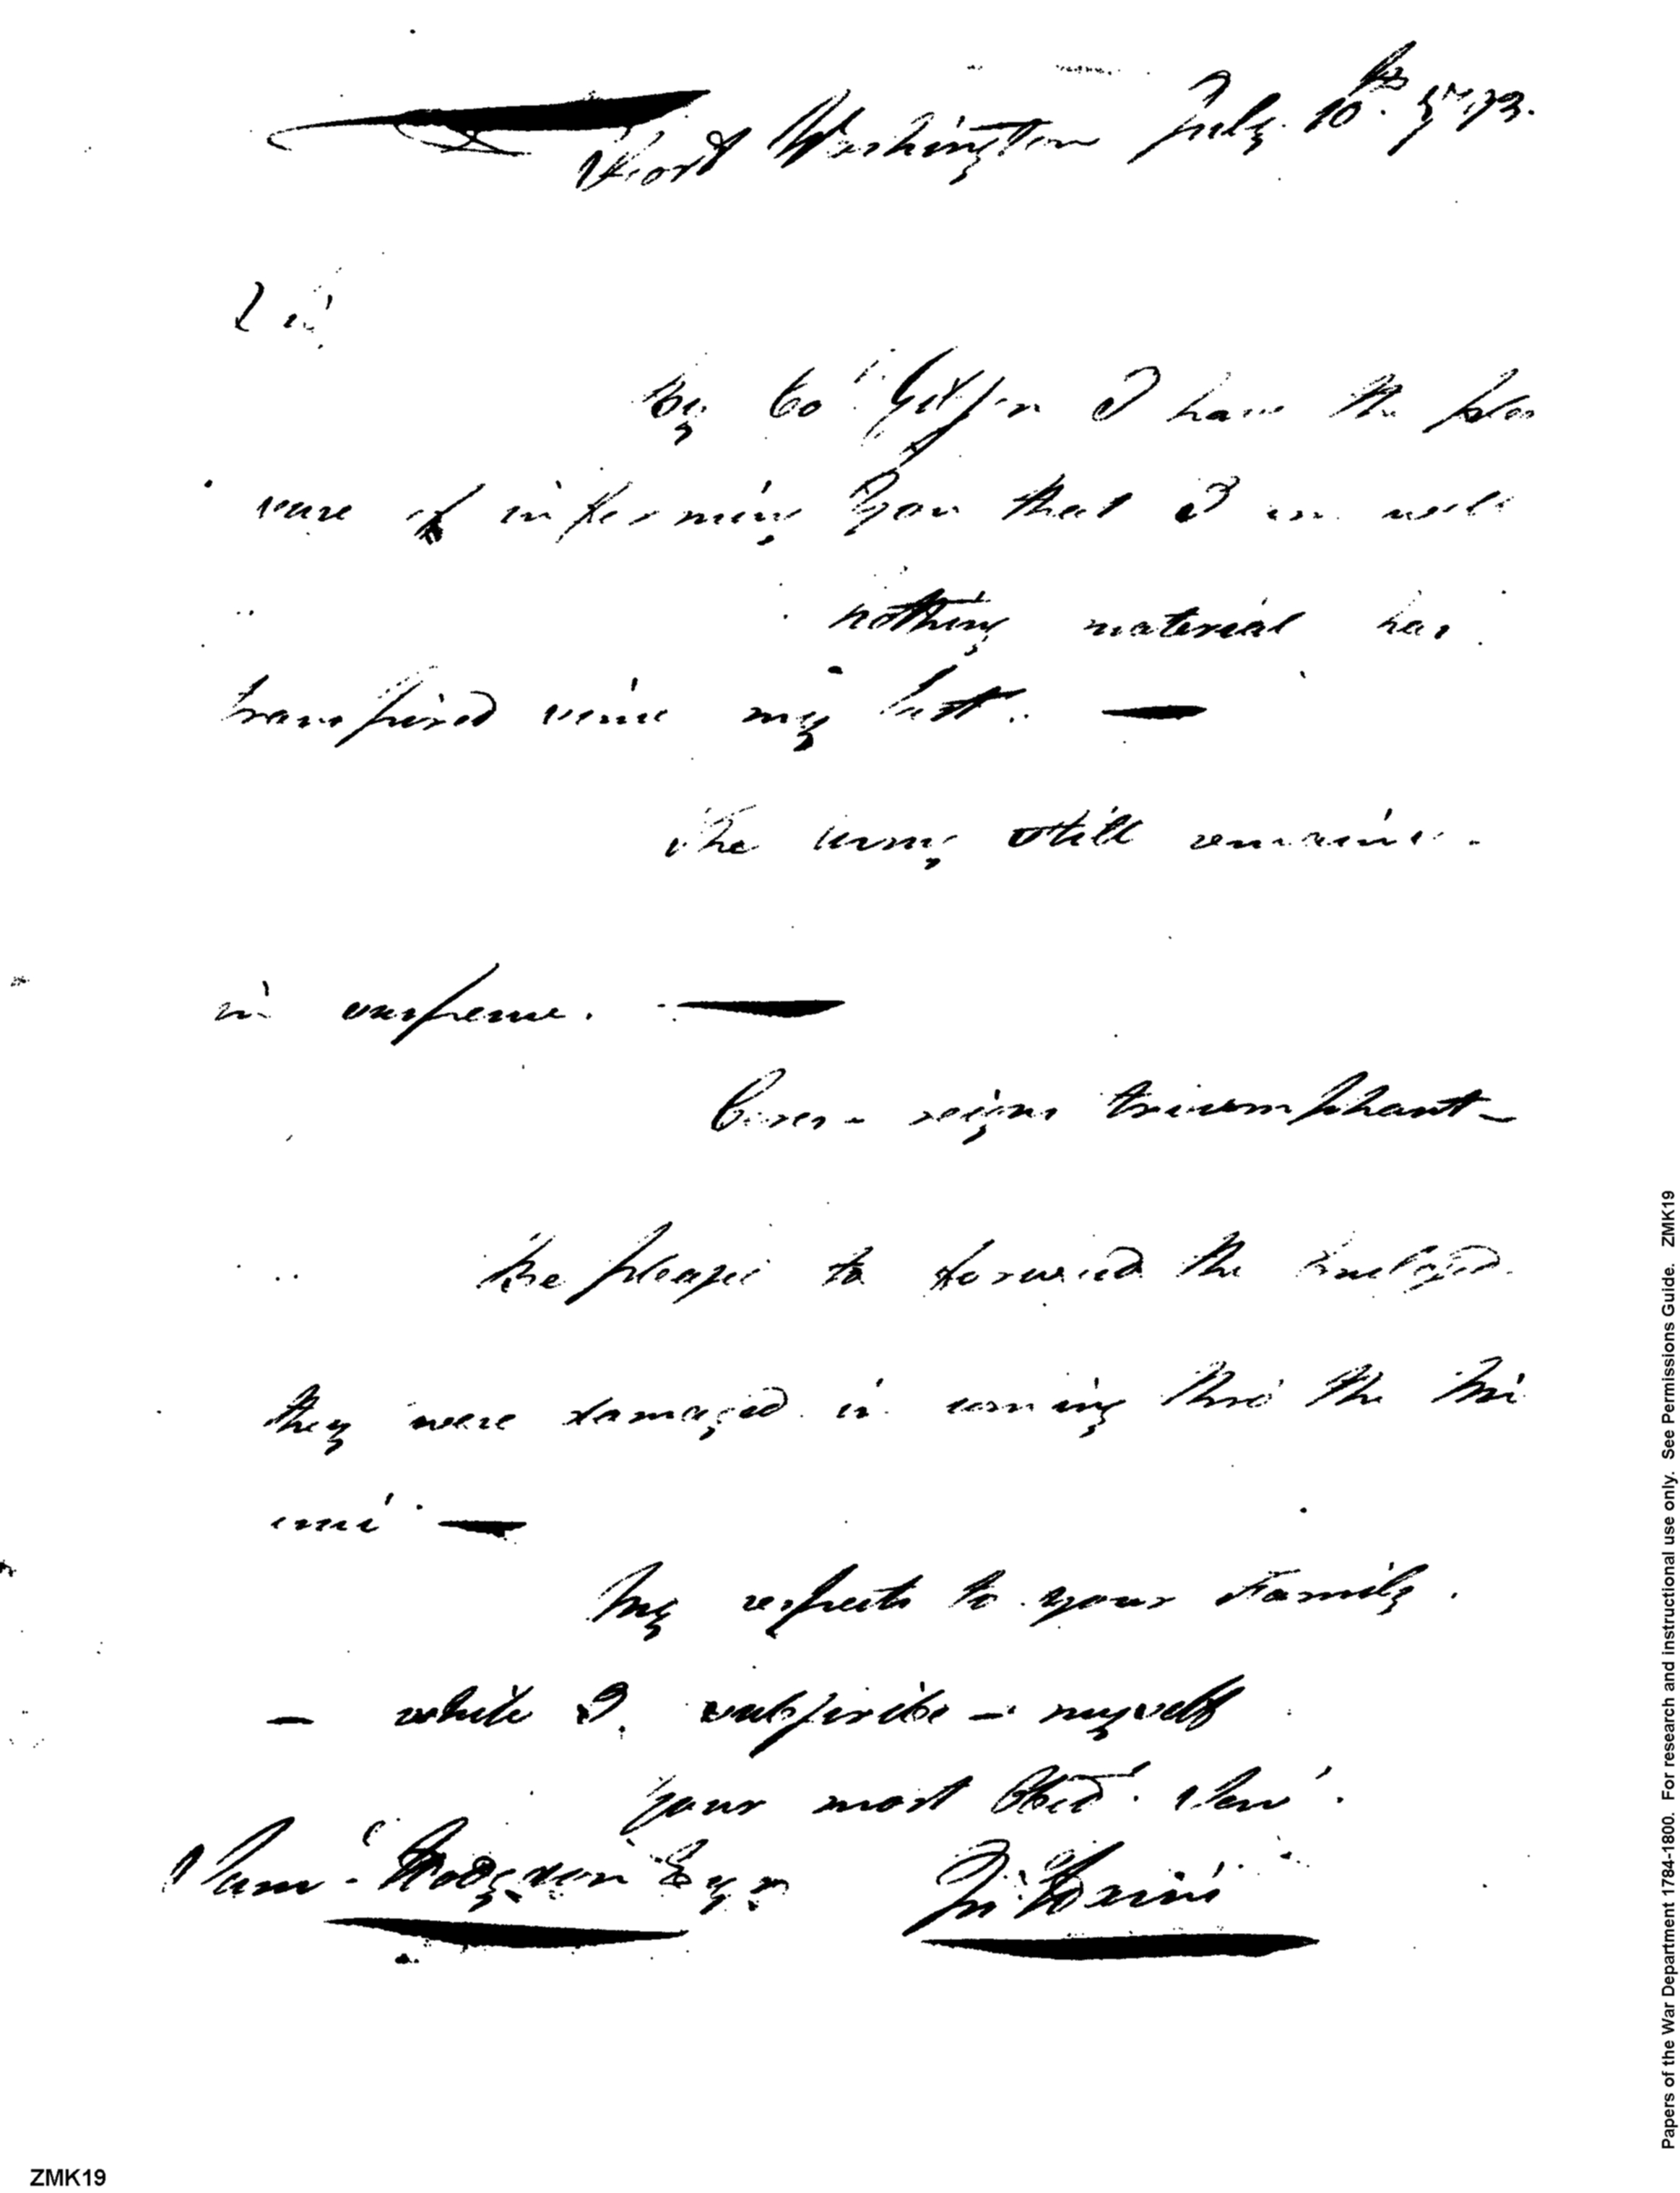 Fort Washington July 10th 1793.
Sir
By Col. Gibson I have the plea
sure of informing You that I am well
nothing material has
transpired since my last. —
The army still remains
in suspense. —
reigns triumphant —
be pleased to forward the Enclosed
they were damaged in coming thro' the Mi
ami —
My respects to your Family.
— while I subscribe — myself
Your most Obed. Serv.
Sam. Hodgson Esqr
ZMK19
Papers of the War Department 1784-1800. For research and instructional use only. See Permissions Guide. ZMK19